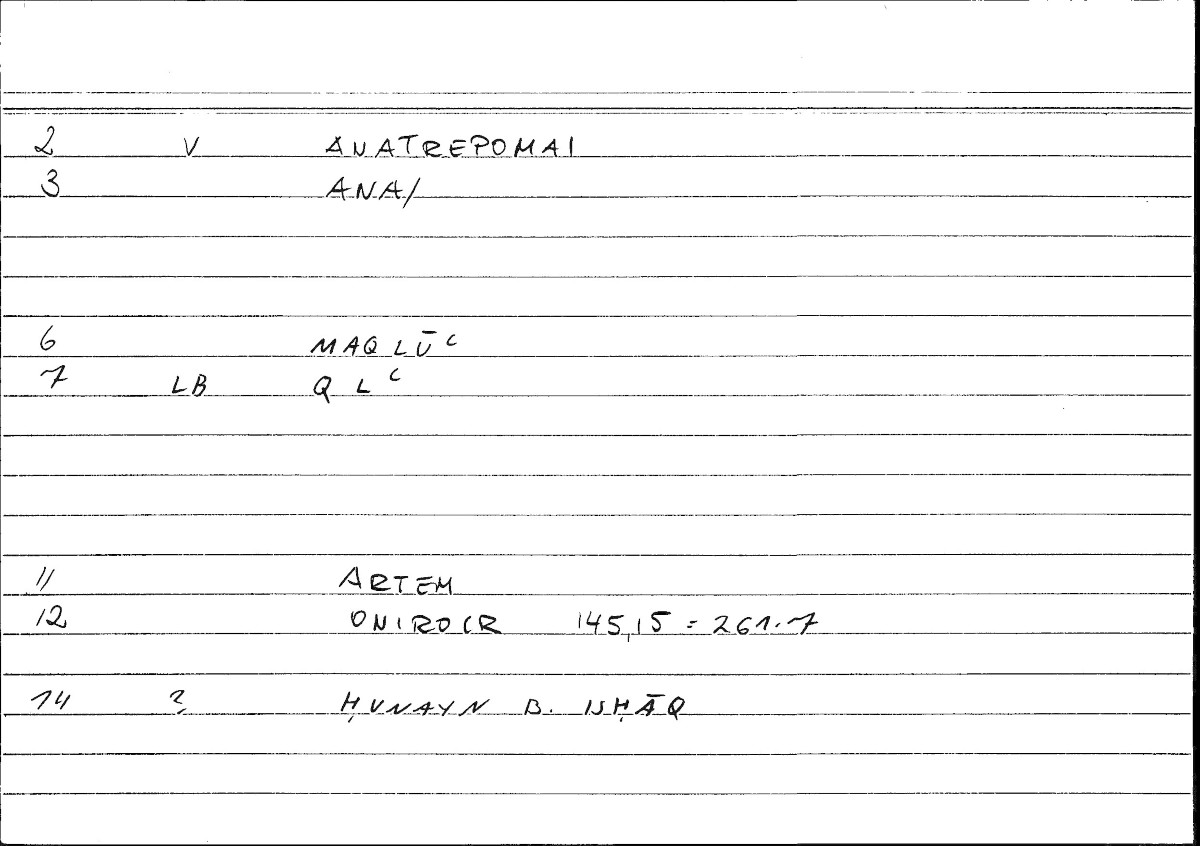 2 V ANATREPOMAI
3 ANA/
6 MAQLŪʿ
7 LB QLʿ
11 ARTEM
12 ONIROCR 145,15 = 261.7
14 ? ḤUNAYN B. ISḤĀQ